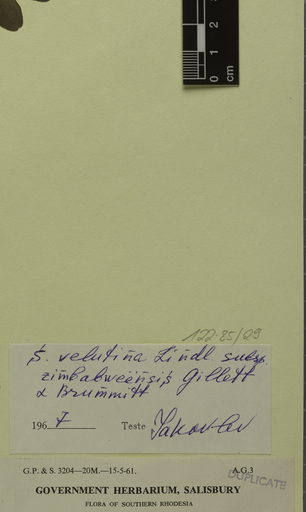 0 1 2
cm
122-85/29
S. velutina Lindl. subsp.
zimbabweensis Gillett
& Brummitt
196 Teste Yakovlev
G.P. & S. 3204—20M.—15-5-61. A.G.3
DUPLICATE
GOVERNMENT HERBARIUM, SALISBURY
FLORA OF SOUTHERN RHODESIA